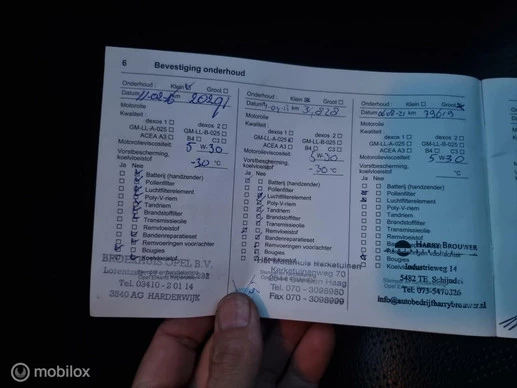 6 Bevestiging onderhoud
Onderhoud : Klein Groot
Datum km 20291
Motorolie
Kwaliteit :
dexos 1 dexos 2
GM-LL-A-025 GM-LL-B-025
ACEA A3 B4 C3
Motorolieviscositeit: 5 W-30
Vorstbescherming, koelvloeistof -30 °C
Ja Nee
Batterij (handzender)
Pollenfilter
Luchtfilterelement
Poly-V-riem
Tandriem
Brandstoffilter
Transmissieolie
Remvloeistof
Bandenreparatieset
Remvoeringen voor/achter
Bougies
Koelvloeistof
OPEL B.V.
Tel. 03410 - 2 01 14
3840 AG HARDERWIJK
Onderhoud : Klein Groot
Datum km
Motorolie
Kwaliteit :
dexos 1 dexos 2
GM-LL-A-025 GM-LL-B-025
ACEA A3 B4 C3
Motorolieviscositeit: 5 W-30
Vorstbescherming, koelvloeistof -30 °C
Ja Nee
Batterij (handzender)
Pollenfilter
Luchtfilterelement
Poly-V-riem
Tandriem
Brandstoffilter
Transmissieolie
Remvloeistof
Bandenreparatieset
Remvoeringen voor/achter
Bougies
Koelvloeistof
Kerketuinenweg 70
Den Haag
Tel. 070 - 3098980
Fax 070 - 3098999
Onderhoud : Klein Groot
Datum km
Motorolie
Kwaliteit :
dexos 1 dexos 2
GM-LL-A-025 GM-LL-B-025
ACEA A3 B4 C3
Motorolieviscositeit: 5 W-30
Vorstbescherming, koelvloeistof °C
Ja Nee
Batterij (handzender)
Pollenfilter
Luchtfilterelement
Poly-V-riem
Tandriem
Brandstoffilter
Transmissieolie
Remvloeistof
Bandenreparatieset
Remvoeringen voor/achter
Bougies
Koelvloeistof
HARRY BROUWER
Industrieweg 14
5482 TE Schijndel
Tel: 073-5470326
info@autobedrijfharrybrouwer.nl
© mobilox